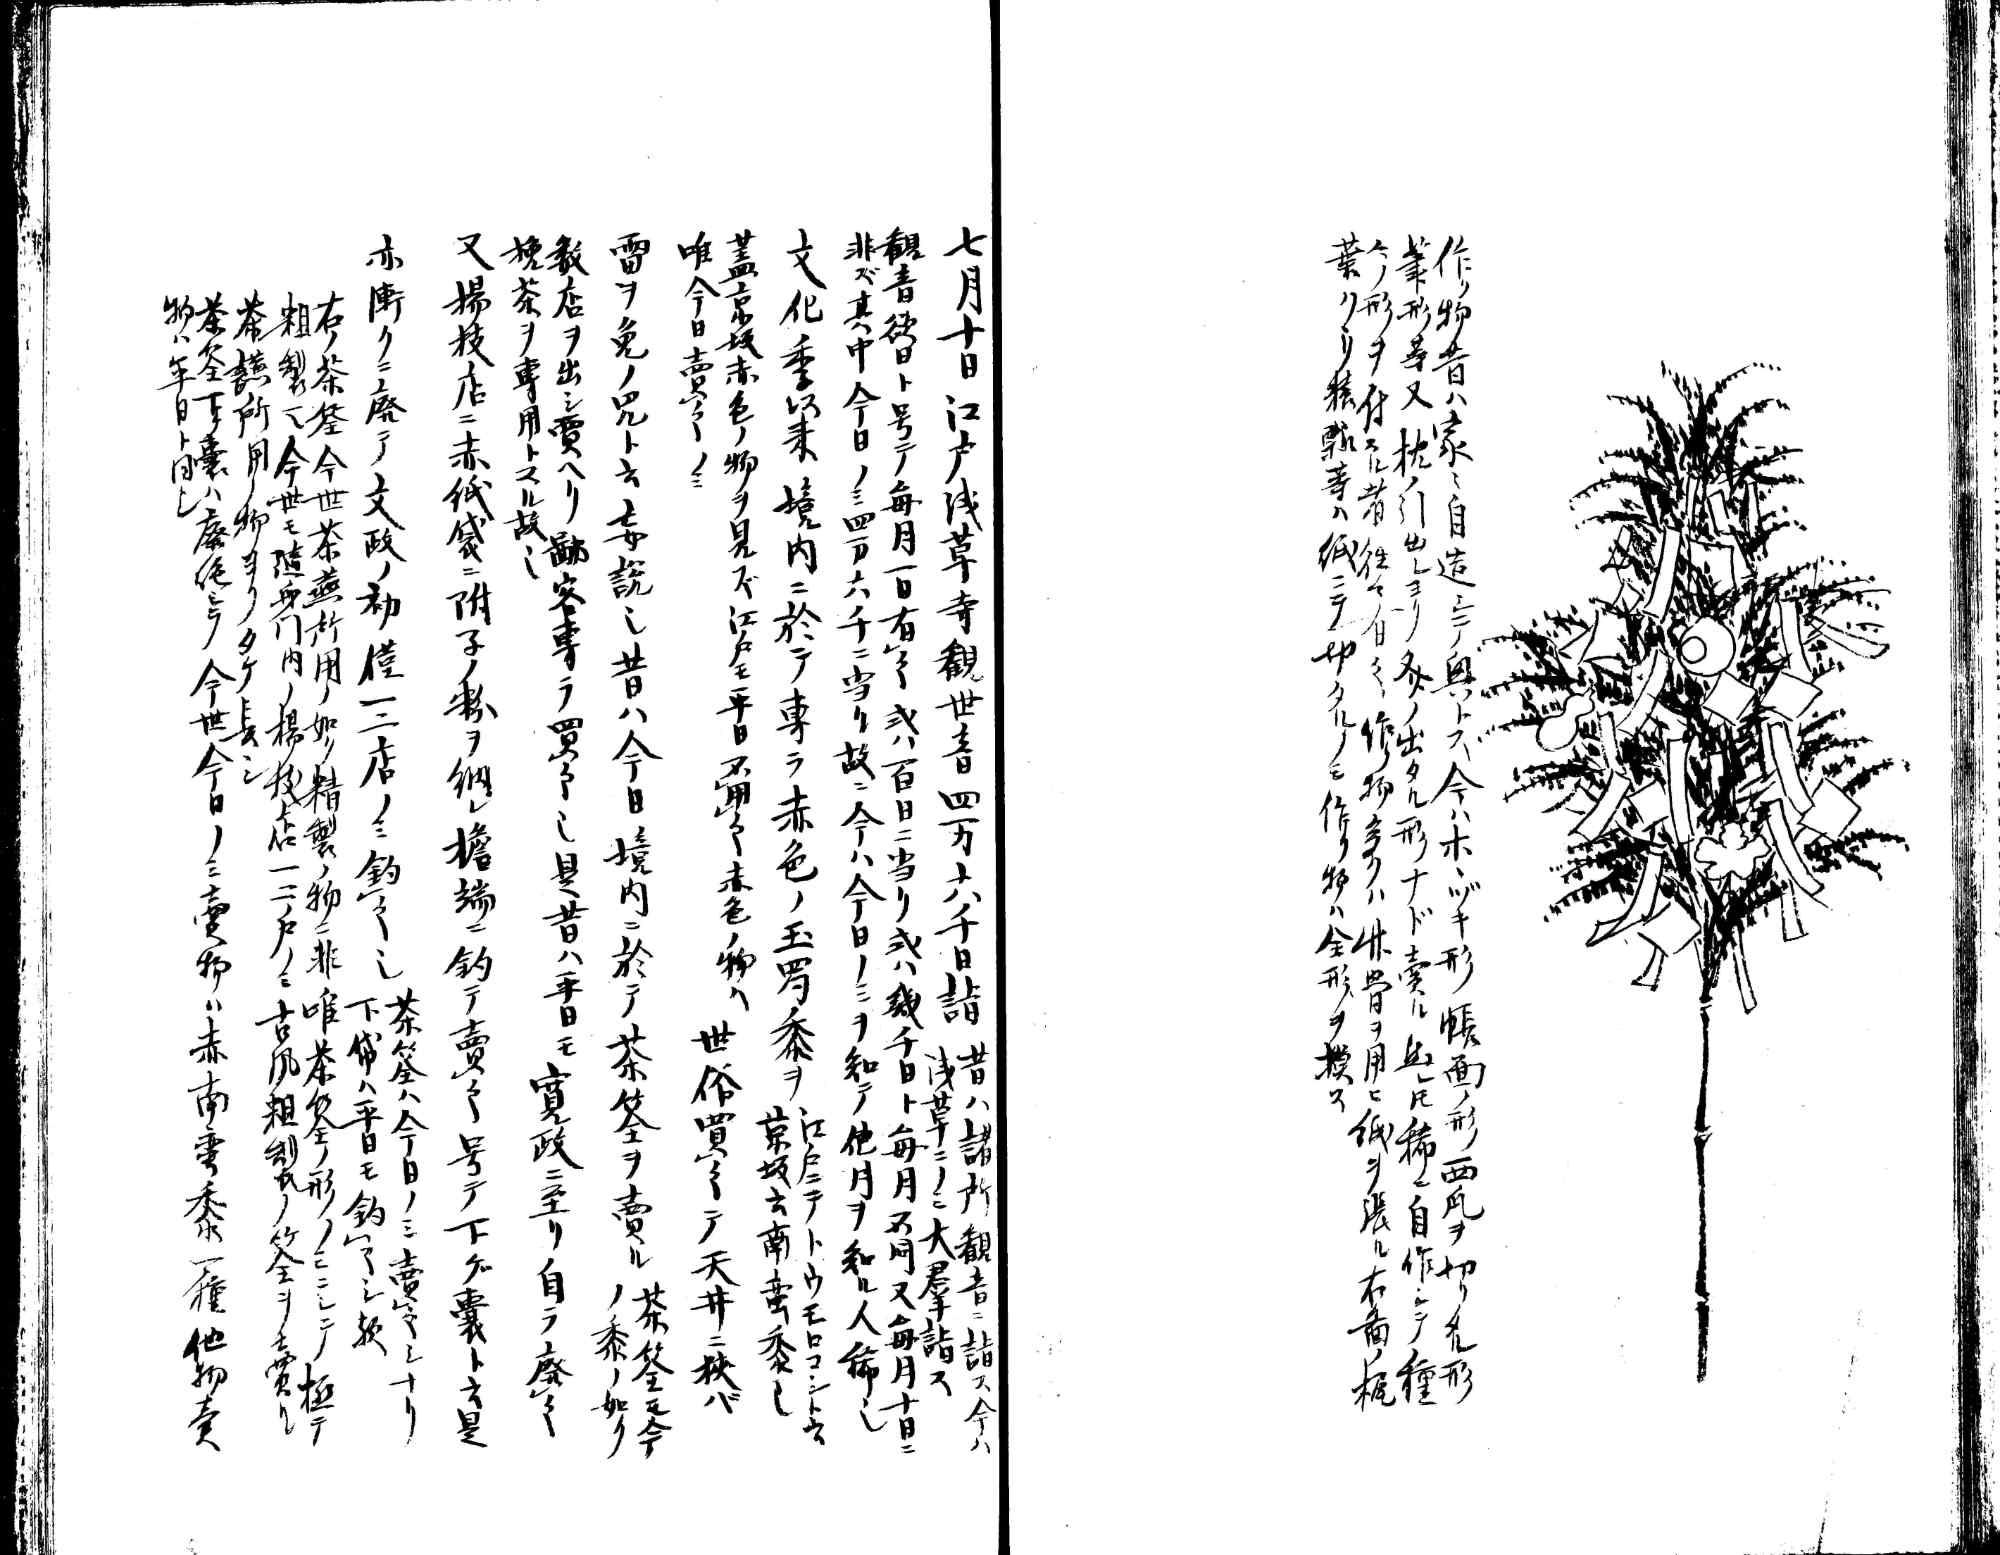 作リ物昔ハ家々自造シテ興トス今ハホヽヅキ形帳面ノ形西瓜ヲ切リタル形
筆形等又枕ノ引出シヨリ文ノ出タル形ナド賣ル與レ𪜈稀ニ自作シテ種
々ノ形ヲ付スル者往々有之作物多クハ竹骨ヲ用ヒ紙ヲ張ル右圖ノ梶
葉クヽリ猿瓢等ハ紙ニテ切タルノミ作リ物ハ全形ヲ模ス
七月十日江戸浅草寺観世音四万六千日詣
昔ハ諸所観音ニ詣ス今ハ
浅草ニノミ大羣詣ス
観音欲日ト号テ毎月一日有之或ハ百日ニ当リ或ハ幾千日ト毎月不同又毎月十日ニ
非ズ其中今日ノミ四万六千ニ当リ故ニ今ハ今日ノミヲ知テ他月ヲ知ル人稀也
文化季以来境内ニ於テ専ラ赤色ノ玉蜀黍ヲ
江戸ニテトウモロコシト云
京坂云南蛮黍也
蓋京坂赤色ノ物ヲ見ズ江戸モ平日不賣之赤色ノ物ハ
唯今日賣之ノミ
世俗買之テ天井ニ挟バ
雷ヲ免ノ呪ト云妄説也昔ハ今日境内ニ於テ茶筌ヲ賣ル
茶筌モ今
ノ黍ノ如ク
数店ヲ出シ賣ヘリ詣客専ラ買之也是昔ハ平日モ
挽茶ヲ専用トスル故也
寛政ニ至リ自ラ廃之
又楊枝店ニ赤紙袋ニ附子ノ粉ヲ納レ檐端ニ釣テ賣之号テ下ゲ嚢ト云是
亦漸クニ廃テ文政ノ初僅一二店ノミ釣之也
茶筌ハ今日ノミ賣之シナリ
下ゲ袋ハ平日モ釣之シ歟
右ノ茶筌今世茶䜩所用ノ如ク精製ノ物ニ非唯茶筌ノ形ノミニシテ極テ
粗製也今世モ随身門内ノ楊枝店一二戸ノミ古風粗製ノ筌ヲモ賣ル
茶䜩所用ノ物ヨリタケ長シ
茶筌下ゲ嚢ハ廃絶シテ今世今日ノミ賣物ハ赤南蛮黍一種他物賣
物ハ平日ト同シ